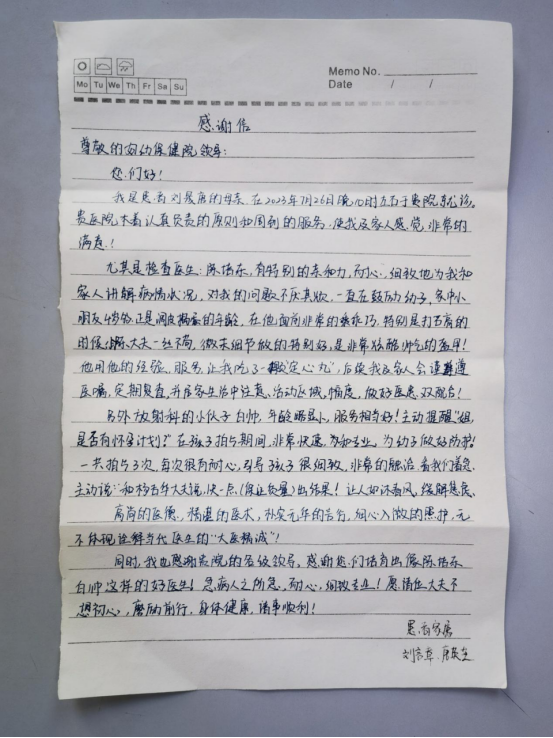 Memo No.
Mo Tu We Th Fr Sa Su
Date / /
感谢信
尊敬的妇幼保健院领导:
您们好!
我是患者刘 的母亲,在2023年7月26日晚10时左右于贵院就诊。
贵医院本着认真负责的原则和周到的服务,使我及家人感觉非常的
满意!
尤其是检查医生:陈培东,有特别的亲和力,耐心,细致地为我和
家人讲解病情状况,对我的问题不厌其烦,一直在鼓励幼子,家中小
朋友4岁 正是调皮捣蛋的年龄,在他面前非常的乖巧,特别是打石膏的
时候 大夫一丝不苟,微末细节做的特别好,是非常炫酷帅气的盔甲!
他用他的经验、服务,让我吃了一颗“定心丸”,后续我及家人会谨遵
医嘱,定期复查,并居家生活中注意,活动区域,幅度,做好医患双配合!
另外放射科的小伙子白帅,年龄略显小,服务相当好!主动提醒“姐,
是否有怀孕计划?”在孩子拍片期间,非常快速,专业,为幼子做好防护!
一共拍片3次,每次很有耐心,引导孩子很细致,非常的融洽,看我们着急,
主动说:“和 大夫说,快一点(保证质量)出结果!让人如沐春风,缓解焦虑、
高尚的医德,精湛的医术,朴实无华的言行,细心入微的照护,无
不体现诠释当代医生的“大医精诚”!
同时,我也感谢贵院的各位领导,感谢您们培育出像陈培东
白帅这样的好医生!急病人之所急,耐心,细致专业!愿诸位大夫不
忘初心,砥砺前行,身体健康,诸事顺利!
患者家属
刘